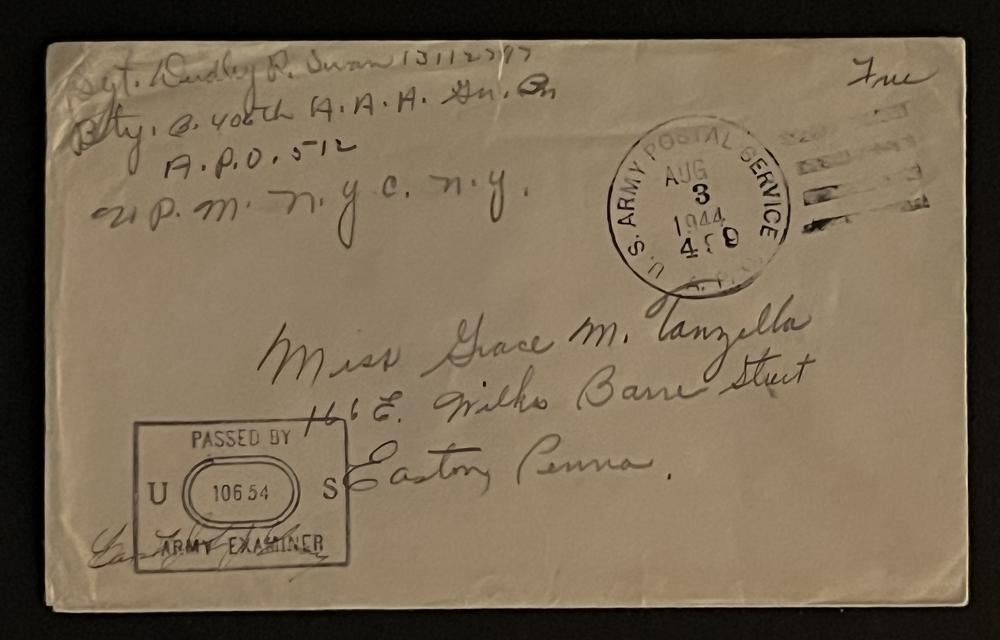 Sgt. Dudley R. Swan 13112797
Bty. B. 406th A.A.A. Gn. Bn
A.P.O. 512
℅ P. M. N. Y C. N. Y.
Free
U.S. ARMY POSTAL SERVICE
AUG
3
1944
A.P.O.
Miss Grace M. Tanzella
166 E. Wilks Barre Street
Easton, Penna.
PASSED BY
U 10654 S
ARMY EXAMINER